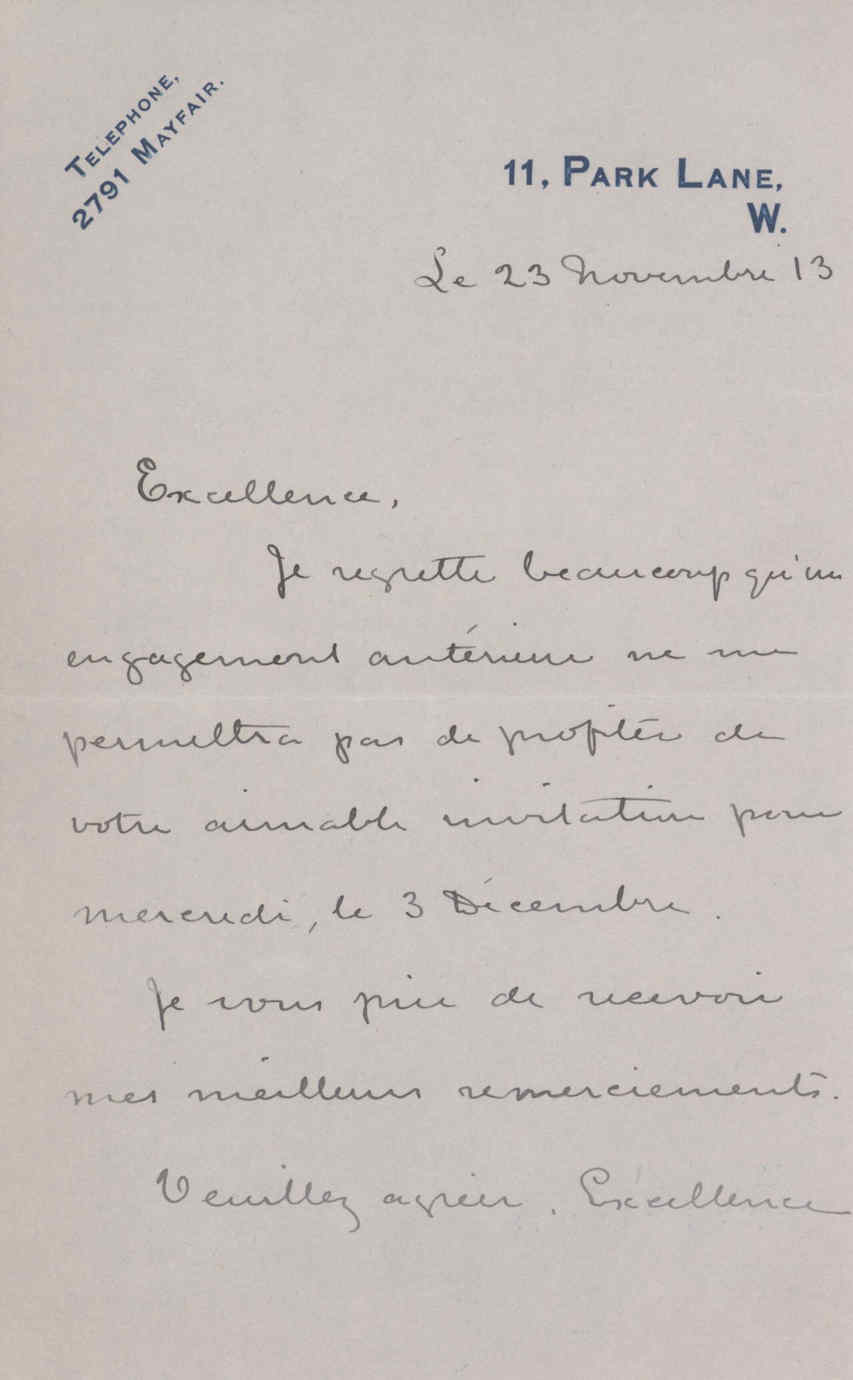 TELEPHONE,
2791 MAYFAIR.
11, PARK LANE,
W.
Le 23 Novembre 13
Excellence,
Je regrette beaucoup qu'un
engagement antérieur ne me
permettra pas de profiter de
votre aimable invitation pour
mercredi, le 3 Décembre.
Je vous prie de recevoir
mes meilleurs remerciements.
Veuillez agréer, Excellence